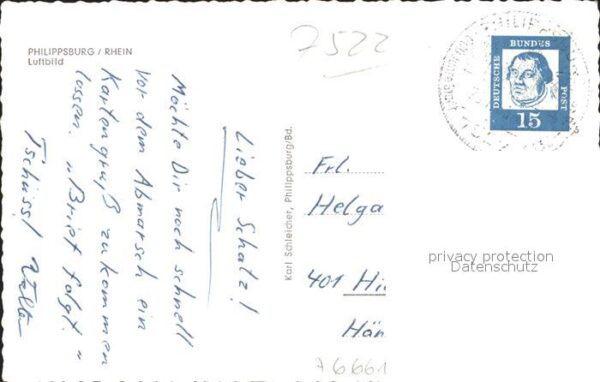 PHILIPPSBURG / RHEIN
Luftbild
7522
Lieber Schatz!
Möchte Dir noch schnell
vor dem Abmarsch ein
Kartengruß zukommen
lassen. „Brief folgt."
Tschüss! Walter
Karl Schleicher, Philippsburg/Bd.
DEUTSCHE
BUNDES
POST
15
Frl.
Helga
401 Hi
Hän
privacy protection
Datenschutz